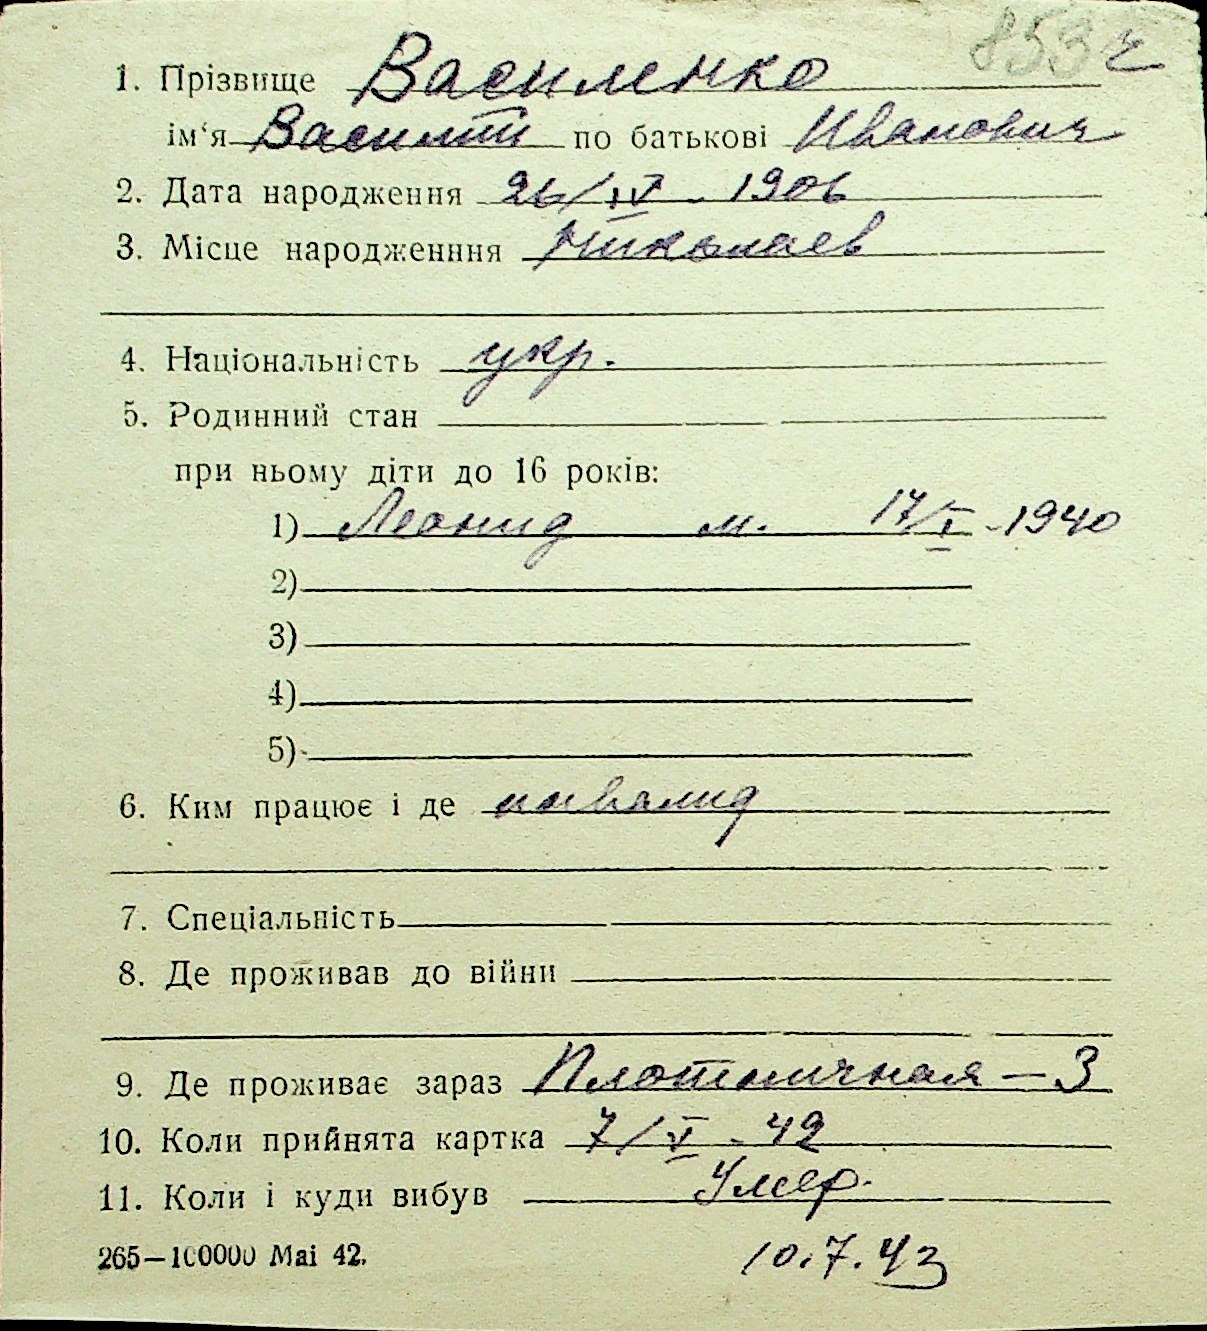 853 г
1. Прізвище Василенко
ім‘я Василий по батькові Иванович
2. Дата народження 26/IV - 1906
3. Місце народженння Николаев
4. Національність укр.
5. Родинний стан
при ньому діти до 16 років:
1) Леонид м. 17/I - 1940
2)
3)
4)
5)
6. Ким працює і де инвалид
7. Спеціальність
8. Де проживав до війни
9. Де проживає зараз Плотничная – 3
10. Коли прийнята картка 7/V - 42
11. Коли і куди вибув Умер.
265—100000 Mai 42.
10.7.43